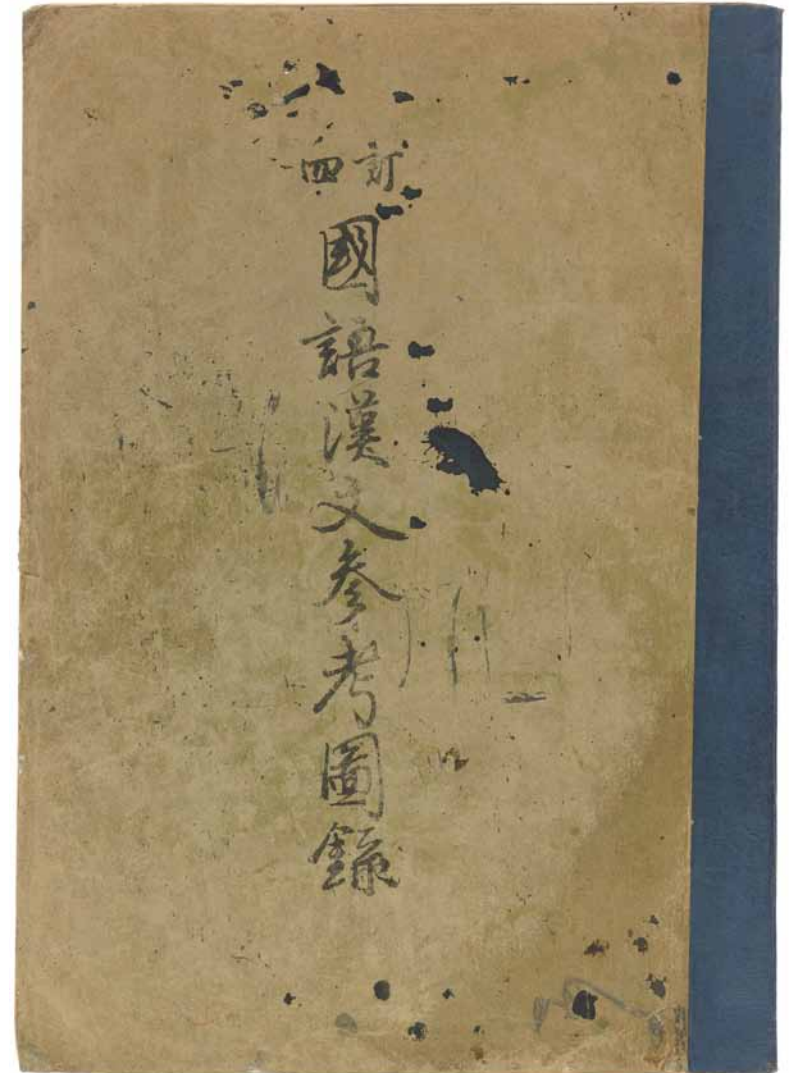 四訂
國語漢文参考圖錄